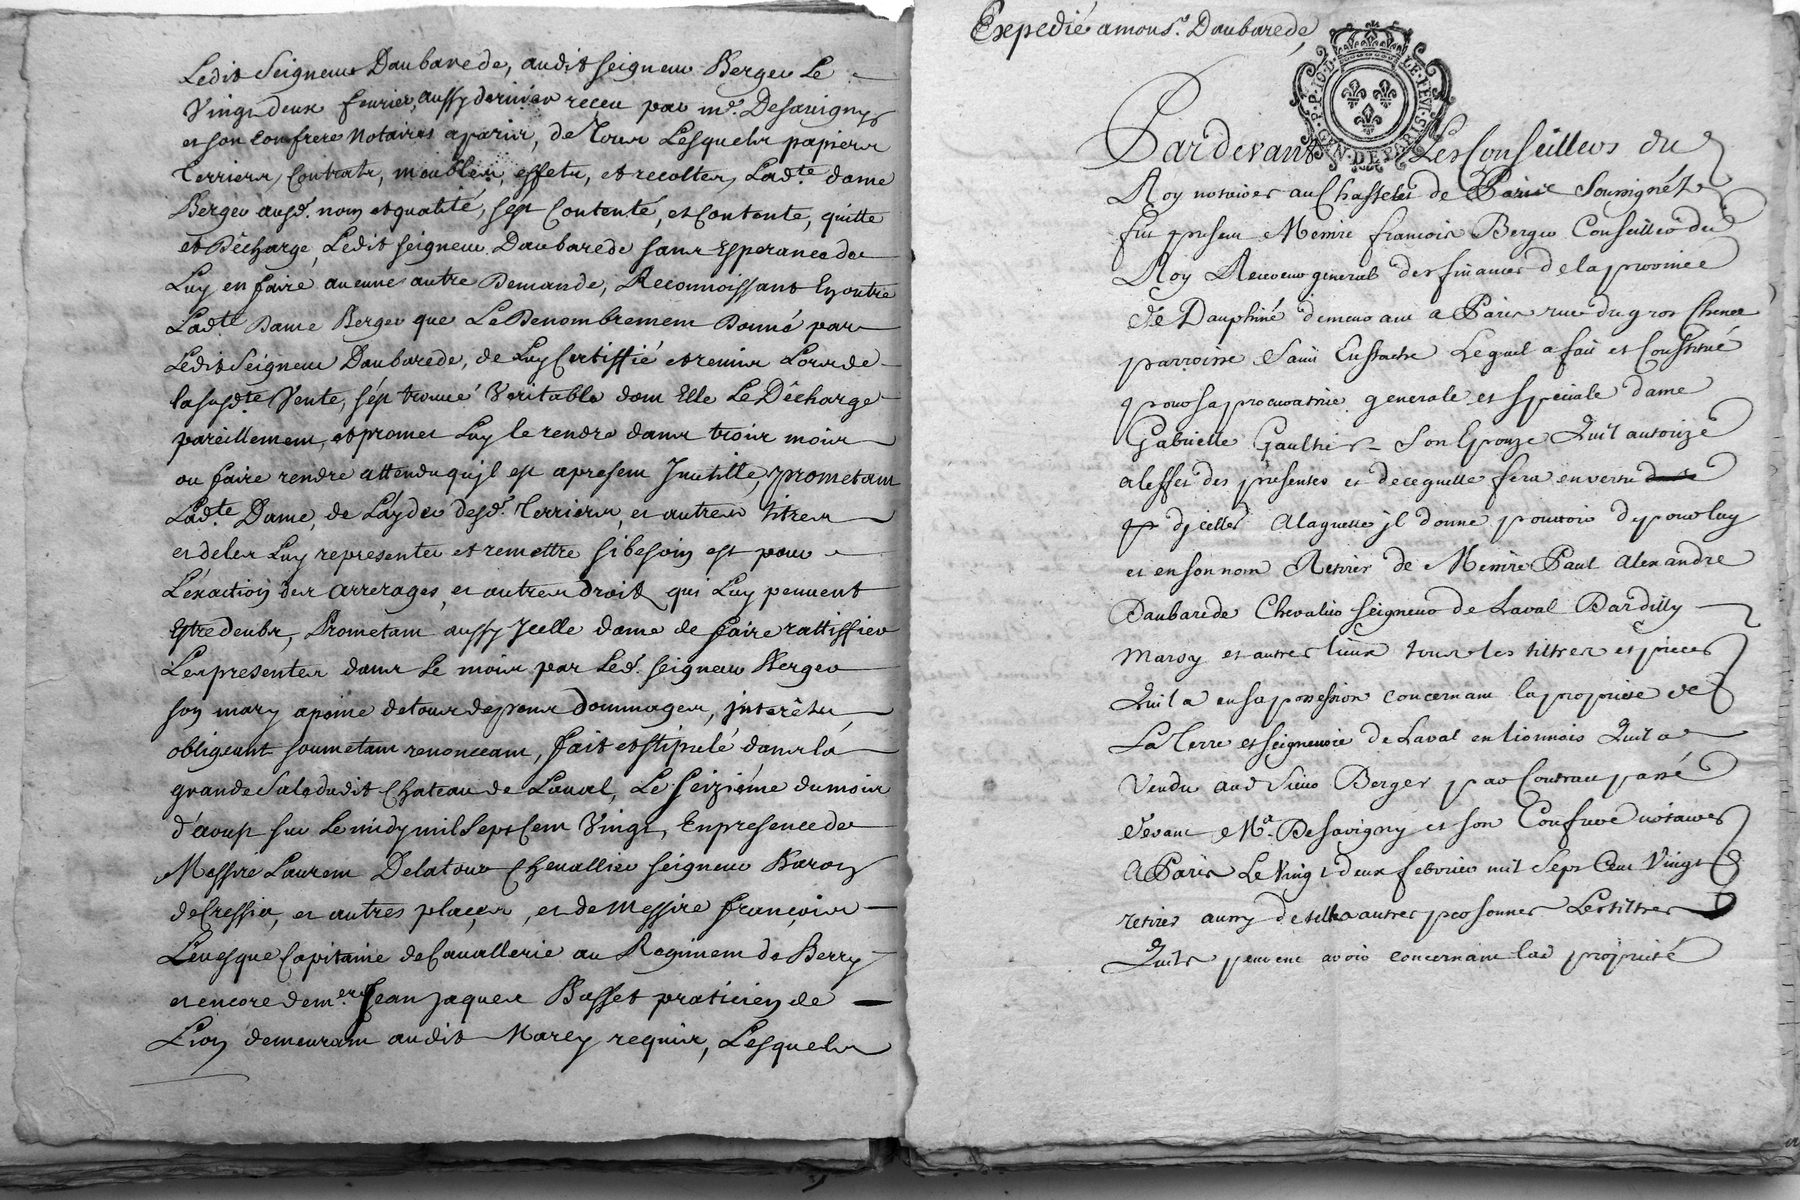 Ledit Seigneur Daubarede, audit seigneur Berger Le
Vingt deux feurier, aussy dernier receu par me. Desavigny
et son confrere Notaires a paris, de Tous Lesquels papiers
Terriers, Contrats, meubles, effets, et recoltes, Ladte. dame
Berger ausd. nom et qualité, sest Contenté, et Contente, quitte
et Décharge, Ledit seigneur Daubarede sans Esperance de
Luy en faire aucune autre Demande, Reconnoissant Enoutre
Ladte Dame Berger que Le Denombrement Donné par
Ledit Seigneur Daubarede, de Luy Certiffié et remis Lors de
lasusdte Vente, sést trouué Veritable dont Elle Le Décharge
pareillement, et promet Luy le rendre dans trois mois
ou faire rendre attendu qujl est apresent Jnutille, prometant
Ladte. Dame, de Layder desd. Terriers, et autres titres
et deles Luy representer et remettre sibesoin est pour
L'éxaction des arrerages, et autres droits qui Luy peuuent
Estre deubs, Prometant aussy Jcelle dame de faire rattiffier
Les presentes dans Le mois par Led. seigneur Berger
son mary apeine detous depens dommages, jnterêts,
obligeant soumetant renonceant, fait et stipulé dans la
grande Sale dudit Chateau de Laual, Le seizième dumois
d'aoust sur Le midy mil Sept Cent Vingt, En presence de
Messire Laurent Delatour Chevallier seigneur Baron
de Cressia, et autres places, et de Messire françois
Leuesque Capitaine de Cauallerie au Regiment de Berry
et encore de mere Jean Jaques Basset praticien de
Lion demeurant audit Marcy requis, Lesquels
Expedié a mons. Daubarede
P. P. 10. D. LE. FEVI.
GEN. DE PARIS
Pardevant Les Conseillers du
Roy notaires au Chastelet de Paris Soussignéz
fut present Messire francois Berger Conseiller du
Roy Receveur general des finances de la province
de Dauphiné demeurant a Paris rue du gros Chenet
parroisse Saint Eustache Lequel a fait et Constitué
pour sa procuratrice generale et speciale dame
Gabrielle Gaultier Son Epouze Quil autorize
a leffet des presentes et de ce quelle fera en vertu
djcelles A laquelle jl donne pouvoir de pour luy
et en son nom Retirer de Messire Paul Alexandre
Daubarede Chevalier seigneur de Laval Dardilly
Marsy et autres lieux tous les tiltres et pieces
Quil a en sa possession concernant la proprieté de
La Terre et seigneurie de Laval en lionnois Quil a
Vendu aud Sieur Berger par Contract passé
devant Me. Desavigny et son Confrere notaires
A Paris Le Vingt deux febvrier mil Sept Cent Vingt
retirer aussy de telles autres personnes Les tiltres
Quils peuvent avoir concernant lad propriété